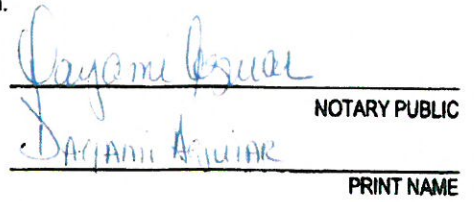 Dayami Aguiar
NOTARY PUBLIC
DAYAMI AGUIAR
PRINT NAME